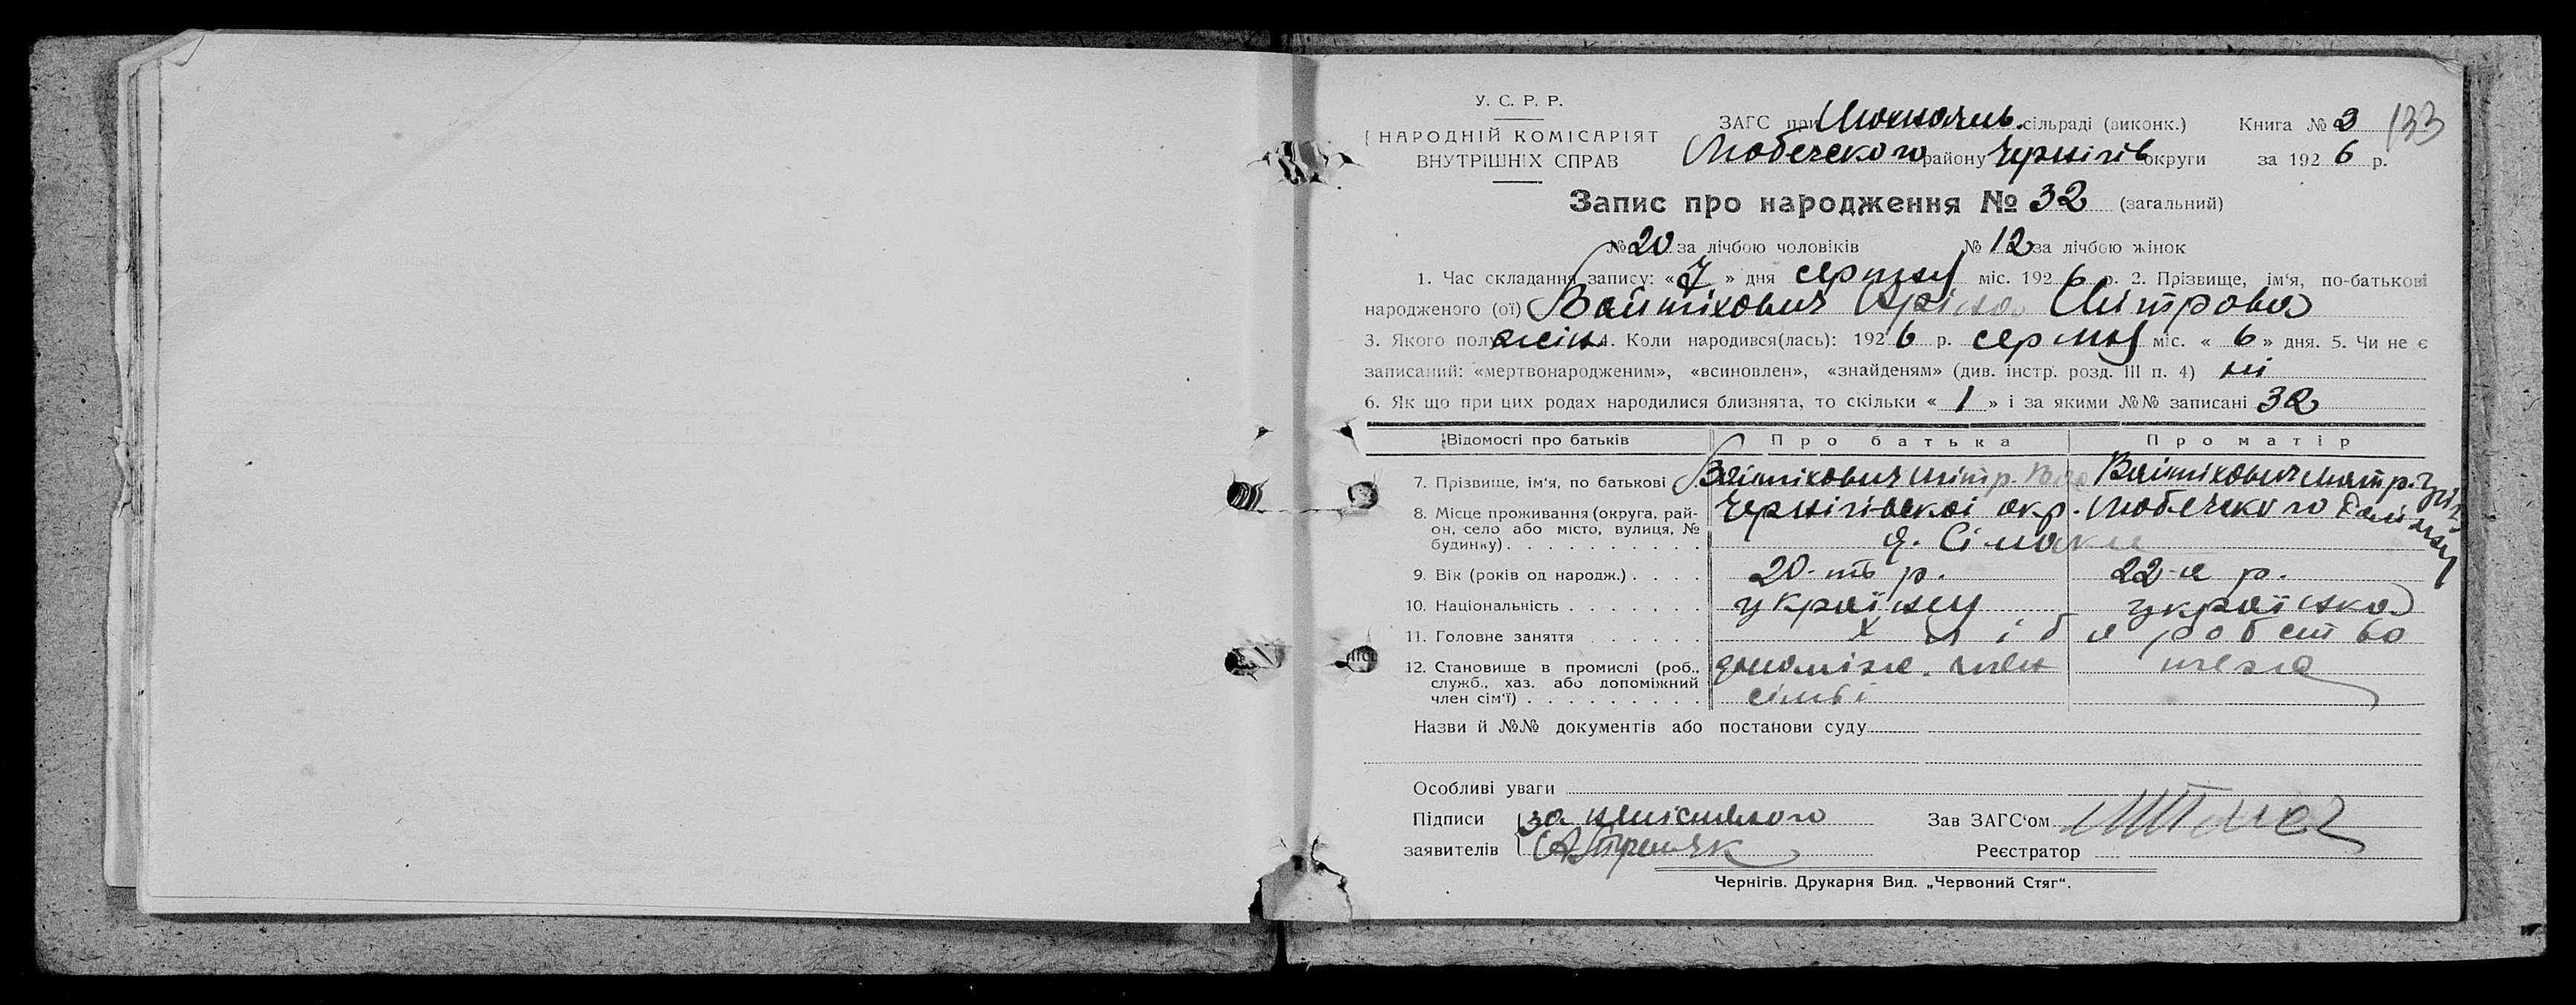 У. С. Р. Р.
НАРОДНІЙ КОМІСАРІЯТ
ВНУТРІШНІХ СПРАВ
ЗАГС при сільраді (виконк.) Книга № 3 133
Любечского району Чернігів округи за 1926 р.
Запис про народження № 32 (загальний)
№ 20 за лічбою чоловіків № 12 за лічбою жінок
1. Час складання запису: «7» дня серпня міс. 1926 р. 2. Прізвище, ім'я, по-батькові
народженого (ої) Войтіхович Мітрова
3. Якого полу жін 4. Коли народився(лась): 1926 р. серпня міс. «6» дня. 5. Чи не є
записаний: «мертвонародженим», «всиновлен», «знайденям» (див. інстр. розд. III п. 4) ні
6. Як що при цих родах народилися близнята, то скільки «1» і за якими №№ записані 32
Відомості про батьків Про батька Про матір
7. Прізвище, ім'я, по батькові Войтіхович Мітр. Войтіхович
8. Місце проживання (округа, рай-
он, село або місто, вулиця, №
будинку)
Чернігівскоі окр. Любечского
9. Вік (років од народж.) 20-ть р. 22-а р.
10. Національність українц українка
11. Головне заняття хлібаробство
12. Становище в промислі (роб.,
служб., хаз. або допоміжний
член сім'ї)
допоміж. член теж
сімьі
Назви й №№ документів або постанови суду
Особливі уваги
Підписи за
заявителів
Зав ЗАГС'ом
Реєстратор
Чернігів. Друкарня Вид. „Червоний Стяг".